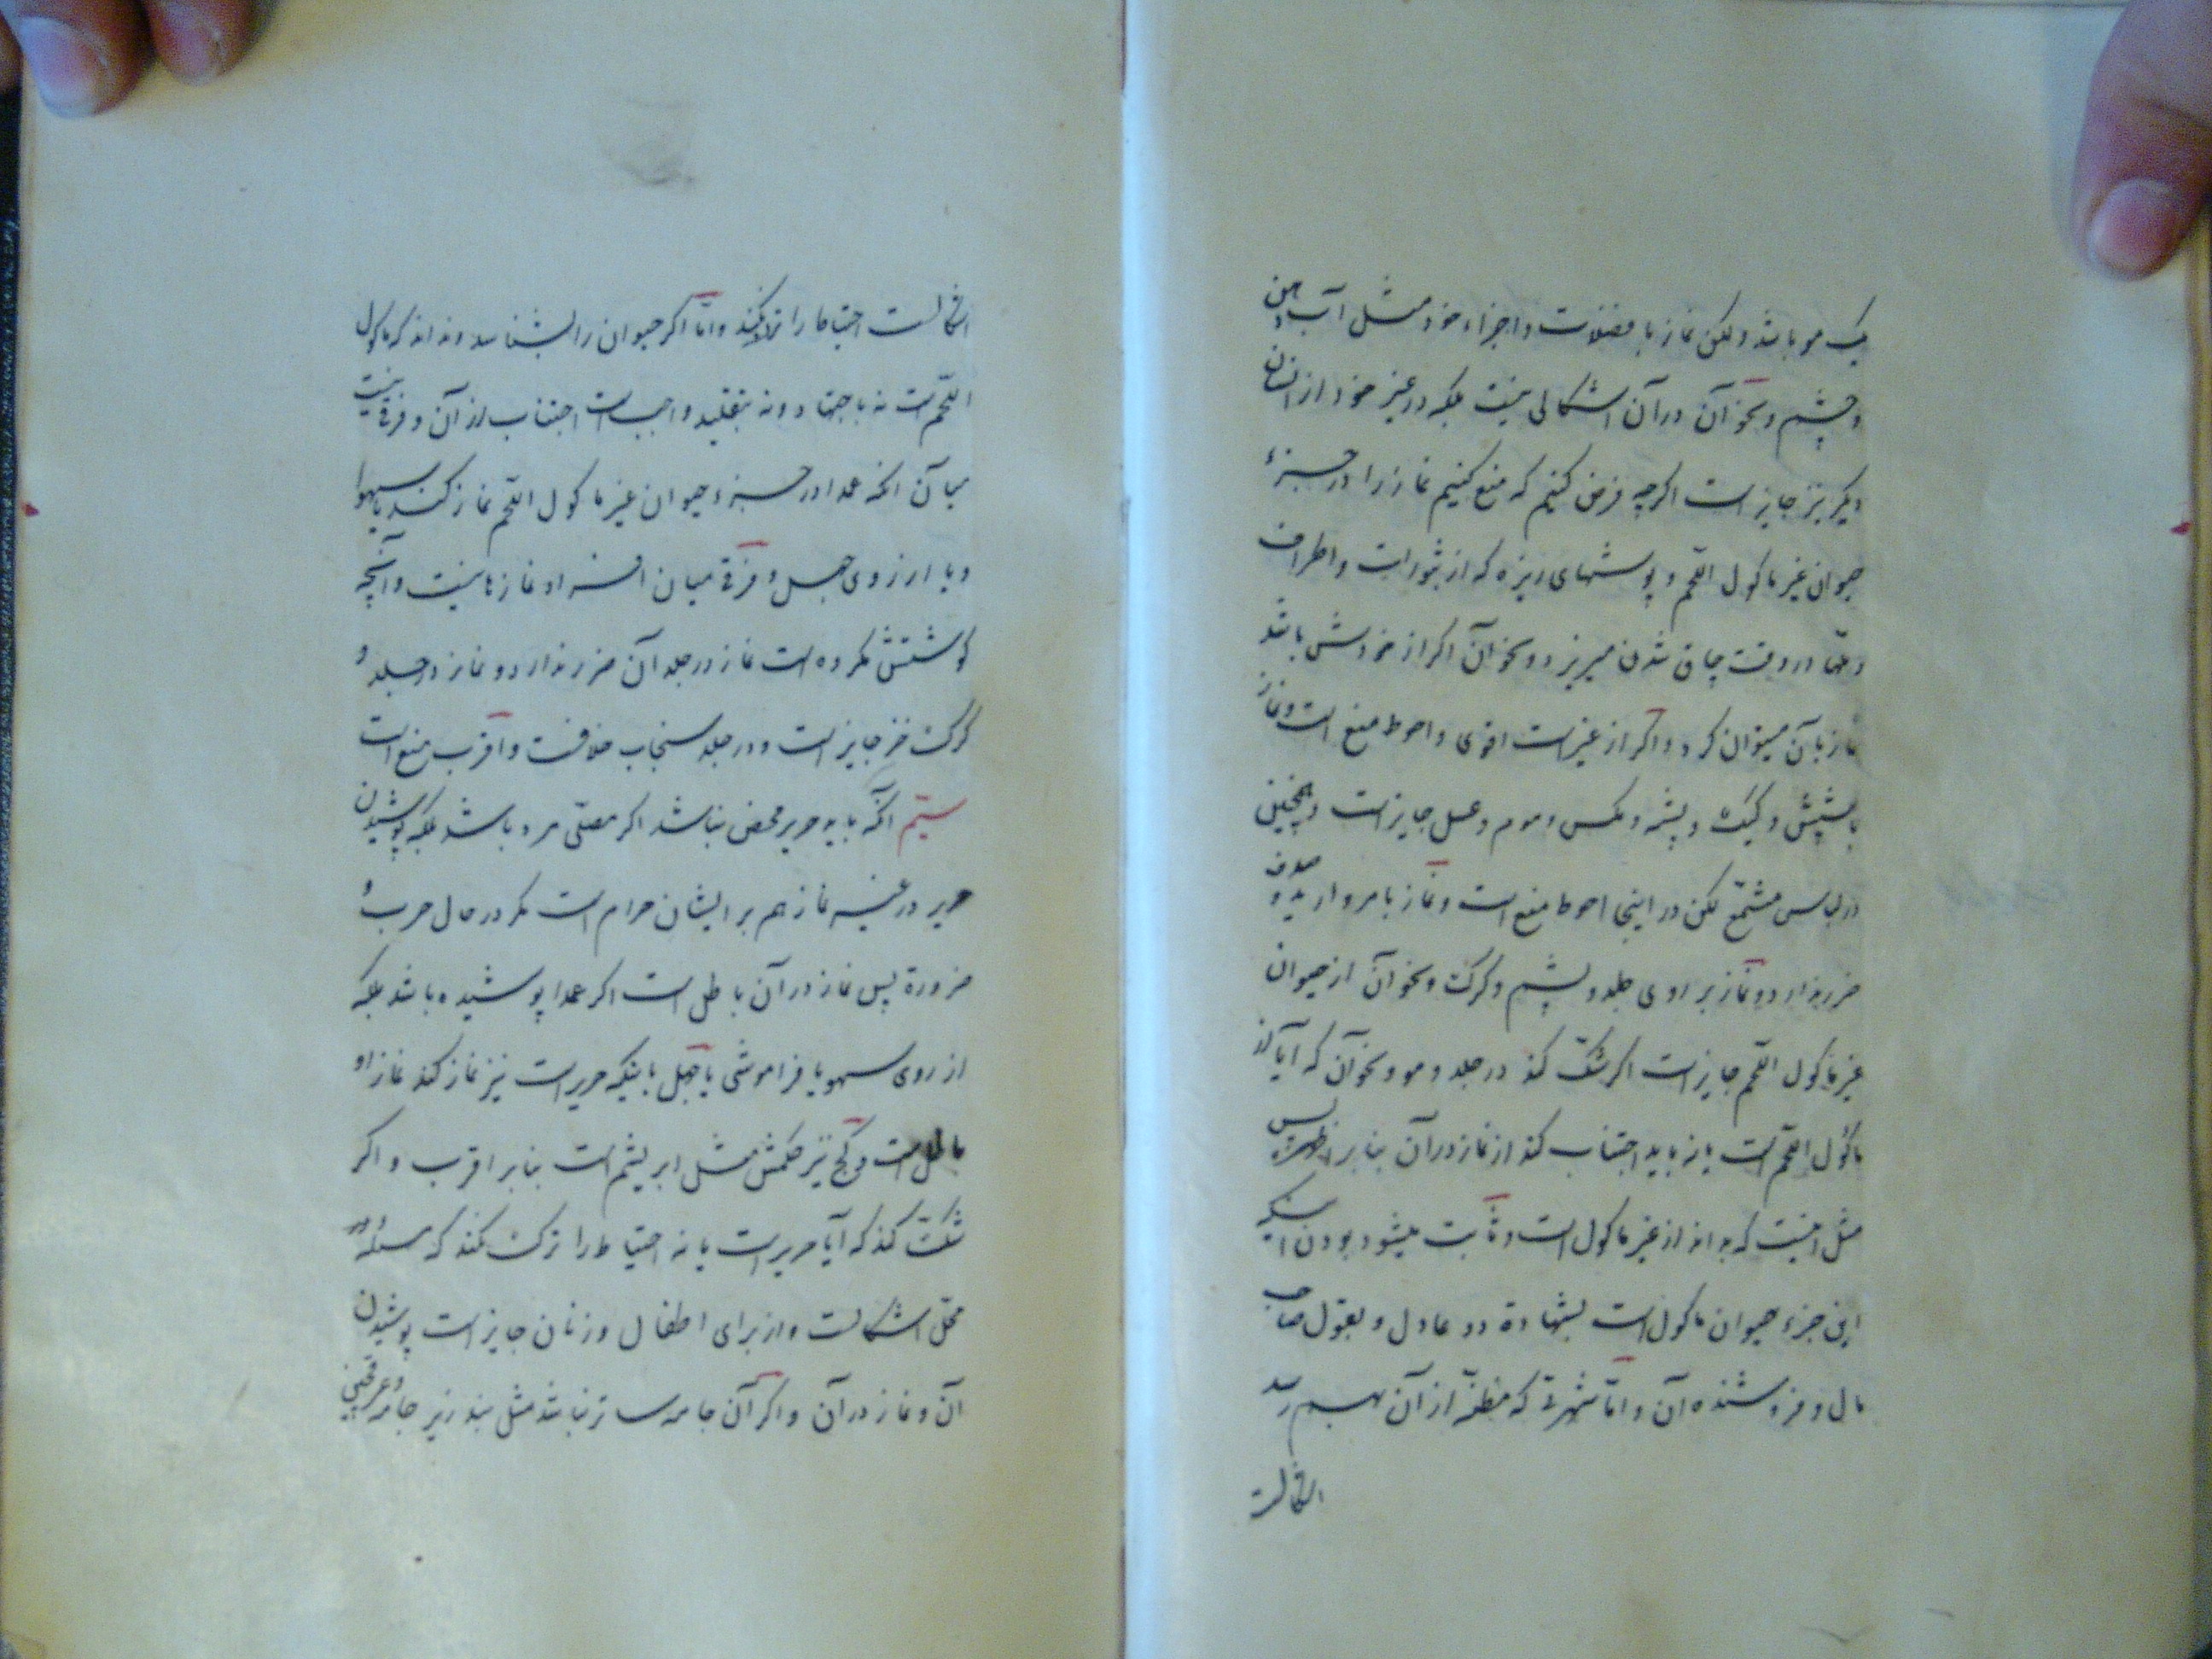 یک مو باشد ولکن نماز با فضلات و اجزاء خود مثل آب دهن
و چشم و نحو آن در آن اشکالی نیست بلکه در غیر خود از انسان
دیگر نیز جایز است اگرچه فرض کنیم که منع کنیم نماز را در جزء
حیوان غیر ماکول اللحم و پوستهای ریزه که از بثورات و اطراف
در وقت چاق شدن میریزد و نحو آن اگر از خودش باشد
نماز با آن میتوان کرد و اگر از غیر است اقوی و احوط منع است و نماز
با شپش و کیک و پشه و مکس و موم و عسل جایز است و همچنین
در لباس مشمّع لکن در اینجا احوط منع است و نماز با مروارید و صدف
ضرر ندارد و نماز بر روی جلد و پشم و کرک و نحو آن از حیوان
غیر ماکول اللحم جایز است اگر شک کند در جلد و مو و نحو آن که آیا از
ماکول اللحم است یا نه باید اجتناب کند از نماز در آن بنابر اظهر پس
مثل اینست که بداند از غیر ماکول است و ثابت میشود بودن اینکه
این جزء حیوان ماکول است بشهادة دو عادل و بقول صاحب
مال و فروشنده آن و امّا شهرتی که مظنّه از آن بهم رسد
اشکالست
اشکالست احتیاط را ترک نکند و امّا اگر حیوان را بشناسد و نداند که ماکول
اللحم است نه باجتهاد و نه بتقلید واجب است اجتناب از آن و فرقی نیست
میان آنکه عمدا در جزء حیوان غیر ماکول اللحم نماز کند یا سهوا
و یا از روی جهل و فرقی میان افراد نمازها نیست و آنچه
گوشتش مکروه است نماز در جلد آن ضرر ندارد و نماز در جلد و
کرک خز جایز است و در جلد سنجاب خلافست و اقرب منع است
سیّم آنکه باید حریر محض نباشد اگر مصلّی مرد باشد بلکه پوشیدن
حریر در غیر نماز هم بر ایشان حرام است مگر در حال حرب و
ضرورة پس نماز در آن باطل است اگر عمدا پوشیده باشد بلکه
از روی سهو یا فراموشی یا جهل باینکه حریر است نیز نماز کند نماز او
باطل است و کج نیز حکمش مثل ابریشم است بنابر اقرب و اگر
شک کند که آیا حریر است یا نه احتیاط را ترک نکند که مسئله در
محلّ اشکالست و از برای اطفال و زنان جایز است پوشیدن
آن و نماز در آن و اگر آن جامه ساتر نباشد مثل بند زیر جامه و عرقچین